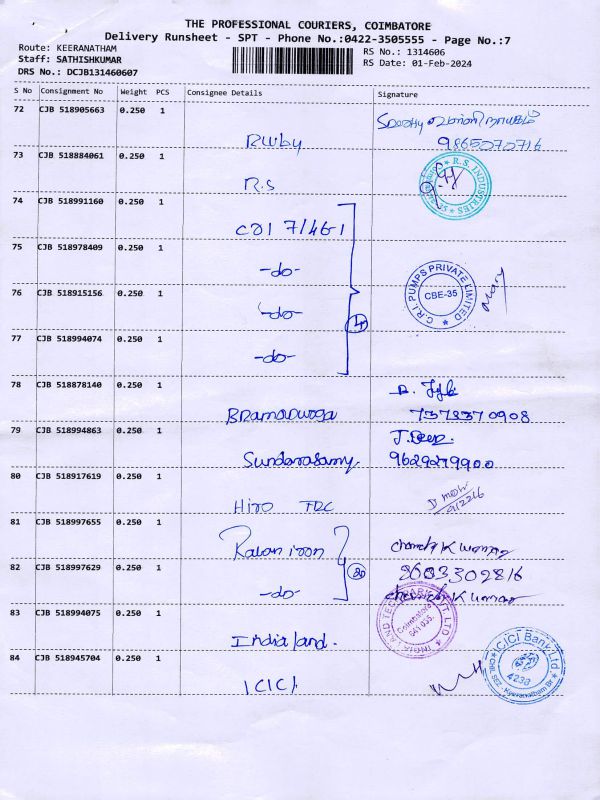 THE PROFESSIONAL COURIERS, COIMBATORE
Delivery Runsheet - SPT - Phone No.:0422-3505555 - Page No.:7
Route: KEERANATHAM
Staff: SATHISHKUMAR
DRS No.: DCJB131460607
RS No.: 1314606
RS Date: 01-Feb-2024
S No Consignment No Weight PCS Consignee Details Signature
72 CJB 518905663 0.250 1
Ruby 9865070716
73 CJB 518884061 0.250 1
R.S
R.S. INDUSTRIES
74 CJB 518991160 0.250 1
75 CJB 518978409 0.250 1
-do-
C.R.I. PUMPS PRIVATE LIMITED
CBE-35
Mary
76 CJB 518915156 0.250 1
-do-
77 CJB 518994074 0.250 1
-do-
78 CJB 518878140 0.250 1
Bramadurga 7378370908
79 CJB 518994863 0.250 1
Sunderasamy 9629279900
80 CJB 518917619 0.250 1
81 CJB 518997655 0.250 1
82 CJB 518997629 0.250 1
-do-
83 CJB 518994075 0.250 1
Indialand.
Coimbatore
641 035.
84 CJB 518945704 0.250 1
ICICI
ICICI Bank Ltd
4230